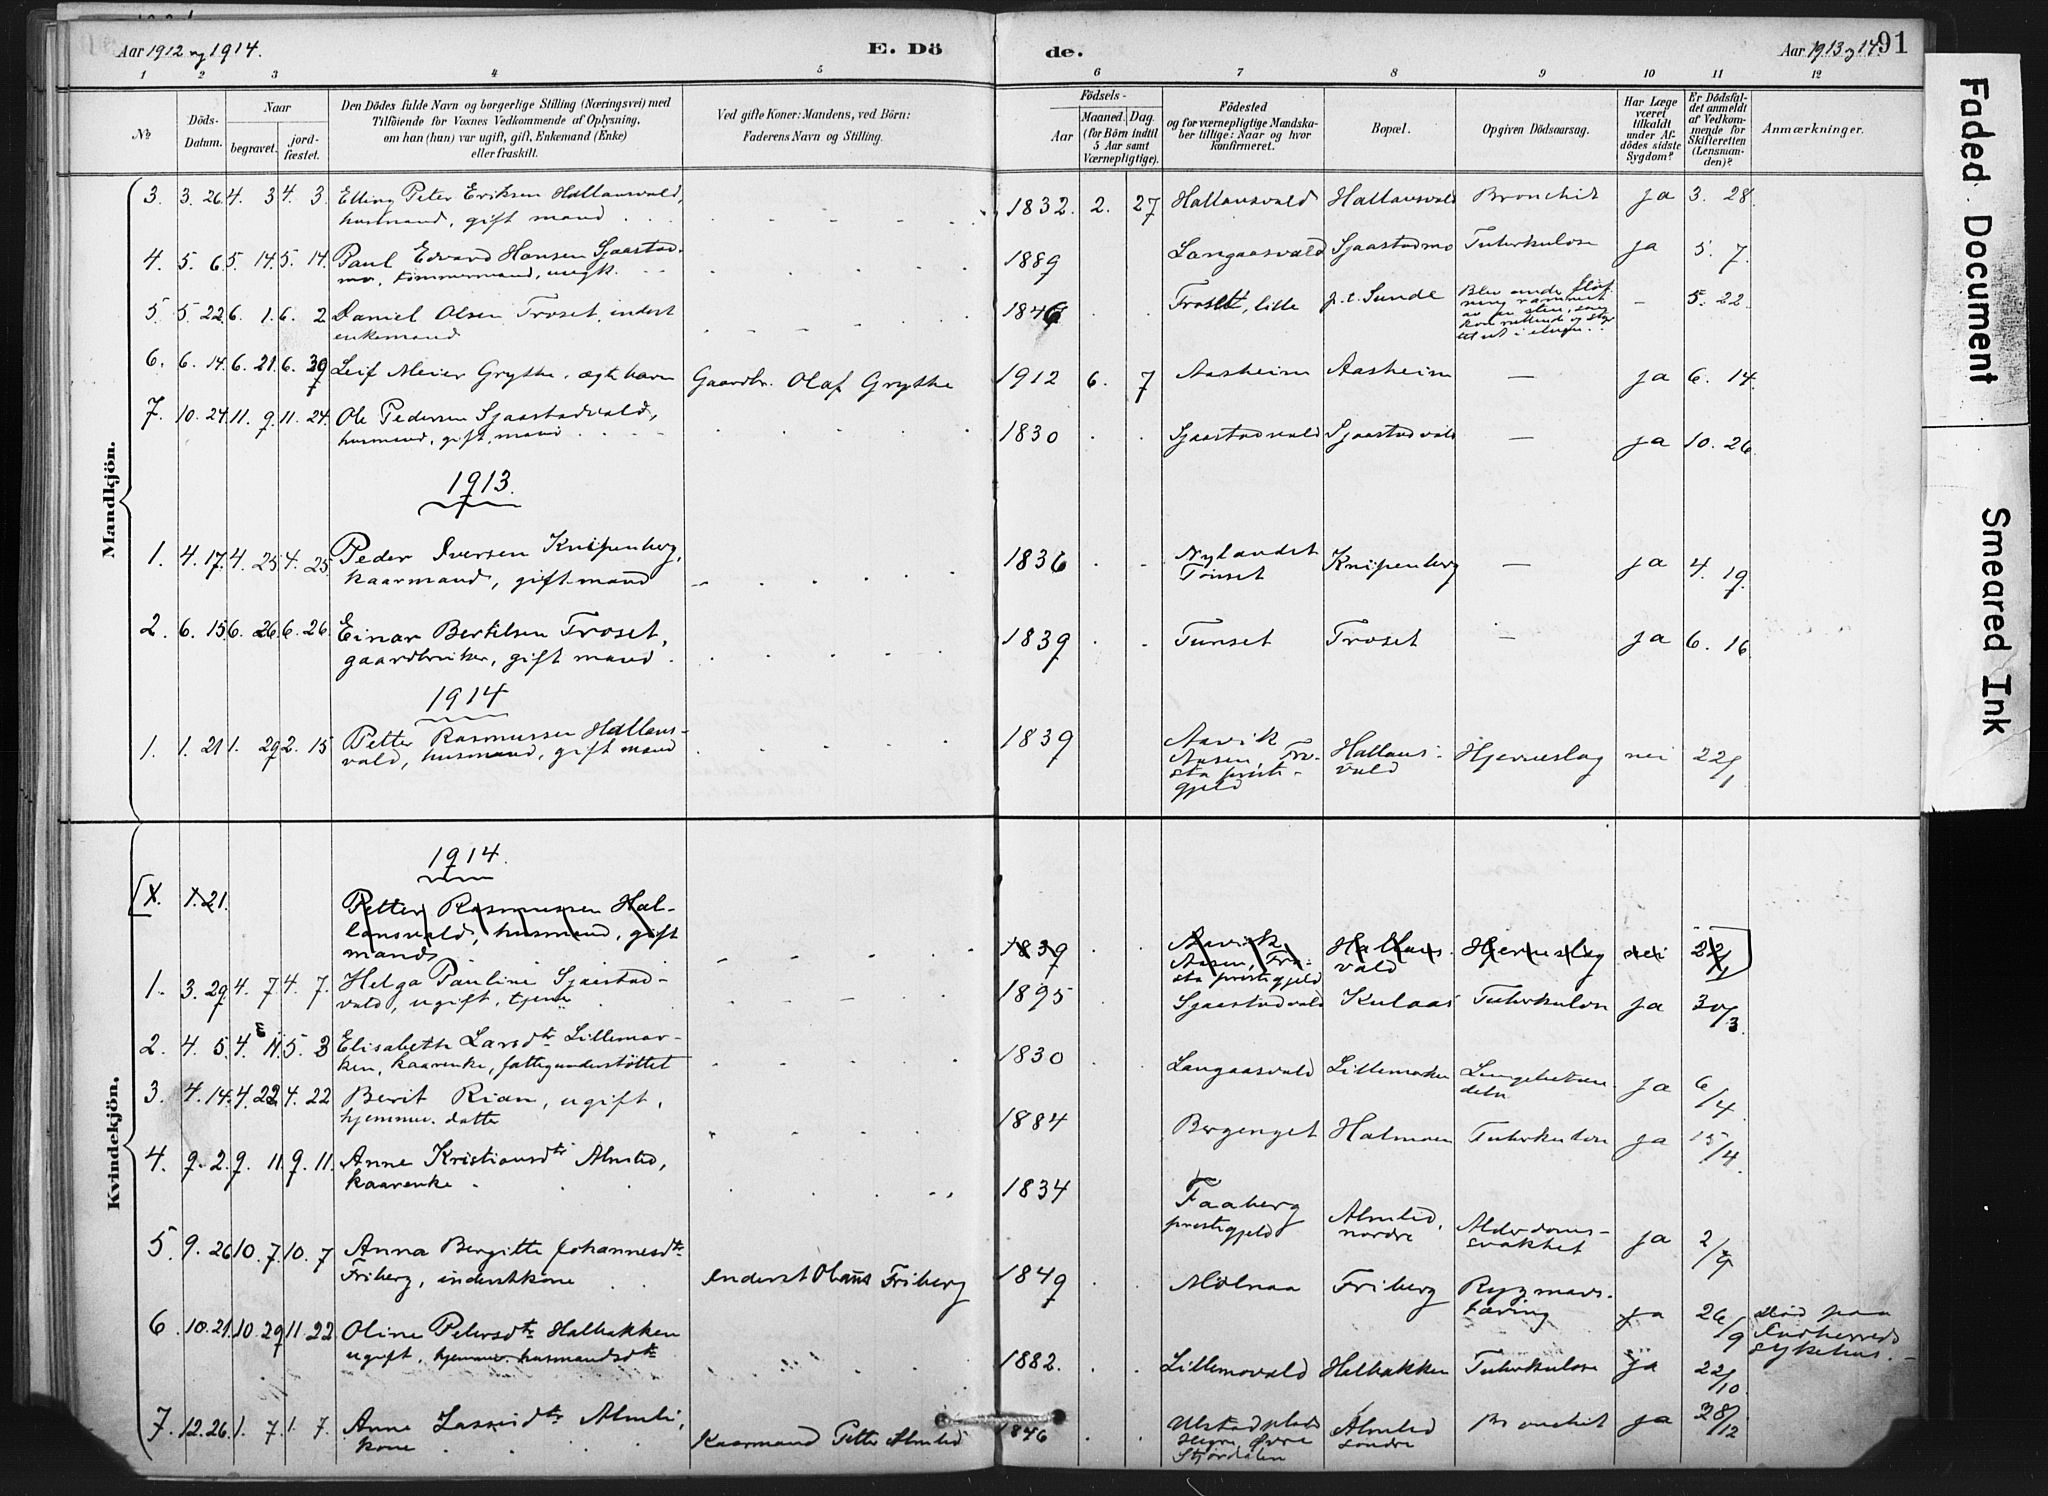 Aar 1912 og 1914.
E. Dö
de.
Aar 1913 og 14.
91
1 2 3 4 5 6 7 8 9 10 11 12
No
Döds-
Datum.
Naar
begravet.
jord-
fæstet.
Den Dödes fulde Navn og borgerlige Stilling (Næringsvei) med
Tilföiende for Voxnes Vedkommende af Oplysning,
om han (hun) var ugift, gift, Enkemand (Enke)
eller fraskilt.
Ved gifte Koner: Mandens, ved Börn:
Faderens Navn og Stilling.
Födsels-
Aar
Maaned. Dag.
(for Börn indtil
5 Aar samt
Værnepligtige).
Födested
og for værnepligtige Mandska-
ber tillige: Naar og hvor
konfirmeret.
Bopæl.
Opgiven Dödsaarsag.
Har Læge
været
tilkaldt
under Af-
dödes sidste
Sygdom?
Er Dödsfal-
det anmeldt
af Vedkom-
mende for
Skifteretten
(Lensman-
den)?
Anmærkninger.
Mandkjön.
3. 3. 26. 4. 3 4. 3. Elling Peter Eriksen Hallansvald,
husmand, gift mand
1832. 2. 27 Hallansvald Hallansvald Bronchit ja 3. 28.
4. 5. 6. 5. 14. 5. 14. Paul Edvard Hansen Sjaastad-
mo, tømmermand, ungk.
1889 Langaasvald Sjaastadmo Tuberkulose ja 5. 7.
5. 5. 22. 6. 1. 6. 2 Daniel Olsen Troset, inderst
enkemand
1846 Troset, lille p.t. Sunde Blev unde fløt-
ning rammet
av en sten, - 5. 22.
6. 6. 14. 6. 21. 6. 30 Leif Meier Grythe, ægte barn
Gaardbr. Olaf Grythe 1912 6. 7 Aasheim Aasheim — ja 6. 14.
7. 10. 24. 11. 9. 11. 24. Ole Pedersen Sjaastadvald,
husmand, gift mand
1830 Sjaastadvald Sjaastadvald — ja 10. 26.
1913.
1. 4. 17. 4. 25. 4. 25. Peder Iversen Knipenberg,
kaarmand, gift mand
1836 Nylandet
Tønset Knipenberg — ja 4. 19.
2. 6. 15. 6. 26. 6. 26. Einar Bertilsen Troset,
gaardbruker, gift mand.
1839 Tunset Troset — ja 6. 16
1914
1. 1. 21. 1. 29. 2. 15 Petter Rasmussen Hallans-
vald, husmand, gift mand
1839 Aavik
Aasen, Fro-
sta preste-
gjeld Hallans-
vald Hjerneslag nei 22/1
Kvindekjön.
1914.
[1. 1. 21. Petter Rasmussen Hal-
lansvald, husmand, gift
mand
1839 Aavik
Aasen, Fro-
sta prestegjeld Hallans-
vald Hjerneslag nei 22/1]
1. 3. 29 4. 7 4. 7. Helga Pauline Sjaastad-
vald, ugift, tjente
1895 Sjaastadvald Kulaas Tuberkulose ja 30/3.
2. 4. 5. 4. 11. 5. 3 Elisabeth Larsdtr Lillemar-
ken, kaarenke, fattigunderstöttet
1830 Langaasvald Lillemarken Lungebetæn-
delse ja 6/4
3. 4. 14. 4. 22. 4. 22 Berit Rian, ugift,
hjemmev. datter
1884 Bergenget Halmoen Tuberkulose ja 15/4.
4. 9. 2. 9. 11. 9. 11. Anne Kristiansdtr Almlid,
kaarenke
1834 Faaberg
prestegjeld Almlid,
nordre Alderdoms-
svakhet ja 2/9
5. 9. 26. 10. 7. 10. 7 Anna Bergitte Johannesdtr
Friberg, inderstkone
Inderst Olaus Friberg 1849 Molnaa Friberg Rygmavs-
tæring ja 26/9 død paa
Indherreds
sykehus.
6. 10. 21. 10. 29. 11. 22 Oline Petersdtr Halbakken
ugift, hjemmev. husmandsdtr
1882. Lillemovald Halbakken Tuberkulose ja 22/10
7. 12. 26. 1. 7. 1. 7. Anne Lassesdtr Almli,
kone
Kaarmand Petter Almlid 1846 Ulstadplads
Hegre, Övre
Stjördalen Almlid
söndre Bronchit ja 28/12
Faded Document
Smeared Ink